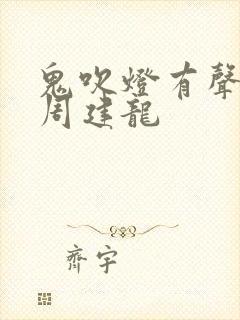 鬼吹燈有聲
周建龍
齊宇